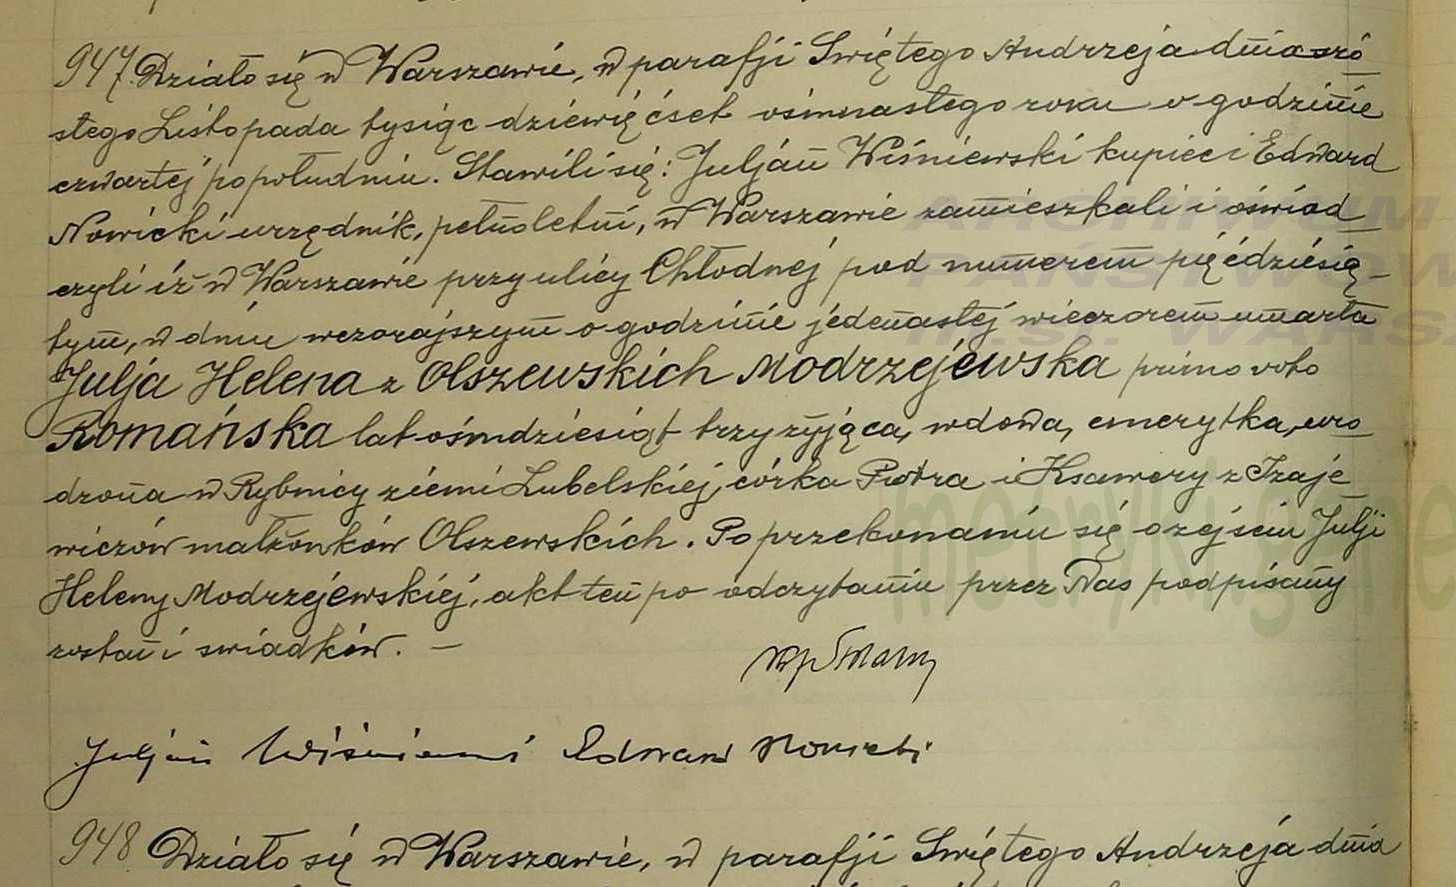 947. Działo się w Warszawie, w parafji Świętego Andrzeja dnia szó
stego Listopada tysiąc dziewięćset ośmnastego roku o godzinie
czwartej popołudniu. Stawili się: Juljan Wiśniewski kupiec i Edward
Nowicki urzędnik, pełnoletni, w Warszawie zamieszkali i oświad
czyli iż w Warszawie przy ulicy Chłodnej pod numerem pięćdziesią-
tym, w dniu wczorajszym o godzinie jedenastej wieczorem umarła
Julja Helena z Olszewskich Modrzejewska primo voto
Romańska lat ośmdziesiąt trzy żyjąca, wdowa, emerytka, uro
dzona w Rybnicy ziemi Lubelskiej, córka Piotra i Ksawery z Izaje
wiczów małżonków Olszewskich. Po przekonaniu się o zejściu Julji
Heleny Modrzejewskiej, akt ten po odczytaniu przez Nas podpisany
został i swiadków. —
Juljan Wiśniewski Edward Nowicki
948 Działo się w Warszawie, w parafji Świętego Andrzeja dnia
ARCHIWUM
PAŃSTWOW
m.s. WARSZ
metryki.gene